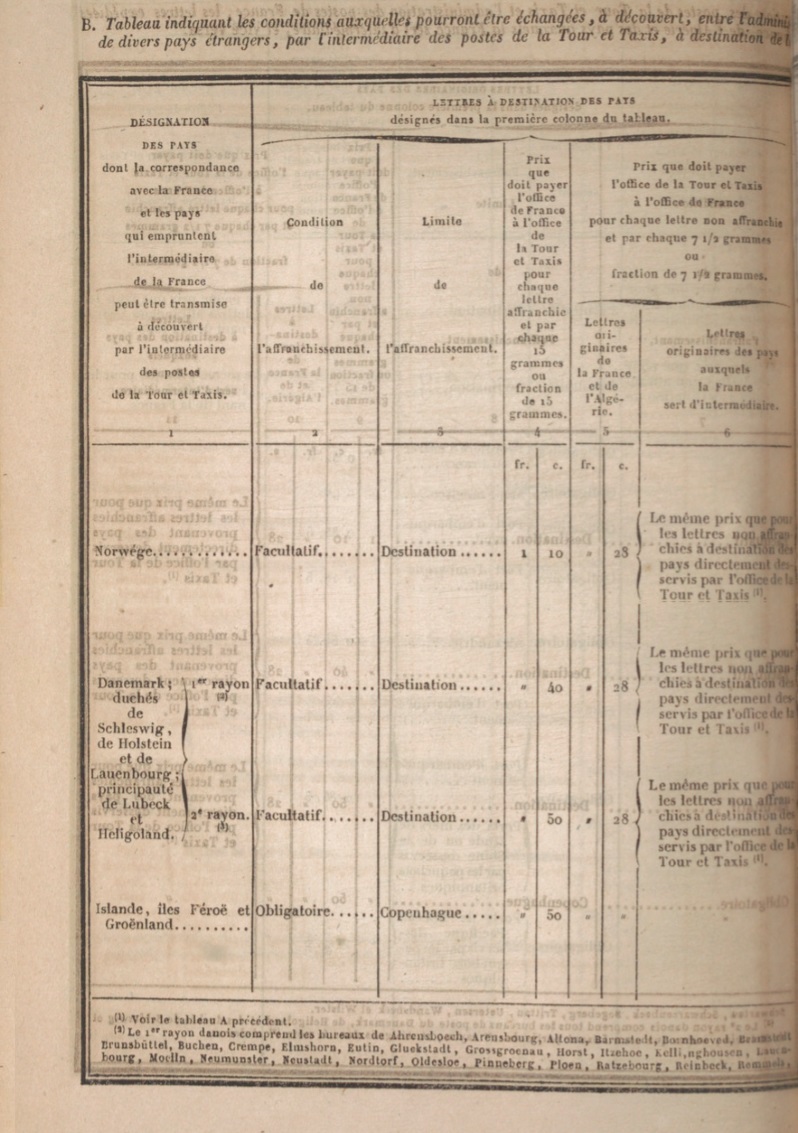 B. Tableau indiquant les conditions auxquelles pourront être échangées, à découvert, entre l'admini
de divers pays étrangers, par l'intermédiaire des postes de la Tour et Taxis, à destination de l
DÉSIGNATION
DES PAYS
dont la correspondance
avec la France
et les pays
qui empruntent
l'intermédiaire
de la France
peut être transmise
à découvert
par l'intermédiaire
des postes
de la Tour et Taxis.
1
LETTRES À DESTINATION DES PAYS
désignés dans la première colonne du tableau.
Condition
de
l'affranchissement.
2
Limite
de
l'affranchissement.
3
Prix
que
doit payer
l'office
de France
à l'office
de
la Tour
et Taxis
pour
chaque
lettre
affranchie
et par
chaque
15
grammes
ou
fraction
de 15
grammes.
4
Prix que doit payer
l'office de la Tour et Taxis
à l'office de France
pour chaque lettre non affranchie
et par chaque 7 1/2 grammes
ou
fraction de 7 1/2 grammes.
Lettres
ori-
ginaires
de
la France
et de
l'Algé-
rie.
5
Lettres
originaires des pays
auxquels
la France
sert d'intermédiaire.
6
fr. c. fr. c.
Norwége............ Facultatif....... Destination ...... 1 10 " 28
Le même prix que pour
les lettres non affran-
chies à destination des
pays directement des-
servis par l'office de la
Tour et Taxis (1).
Danemark;
duchés
de
Schleswig,
de Holstein
et de
Lauenbourg;
principauté
de Lubeck
et
Héligoland.
1er rayon (2) Facultatif....... Destination ...... " 40 " 28
Le même prix que pour
les lettres non affran-
chies à destination des
pays directement des-
servis par l'office de la
Tour et Taxis (1).
2e rayon. (3) Facultatif....... Destination ...... " 50 " 28
Le même prix que pour
les lettres non affran-
chies à destination des
pays directement des-
servis par l'office de la
Tour et Taxis (1).
Islande, îles Féroë et
Groënland..........
Obligatoire...... Copenhague ..... " 50 " "
(1) Voir le tableau A précédent.
(2) Le 1er rayon danois comprend les bureaux de Ahrensboech, Arensbourg, Altona, Barmstedt, Bornhoeved, Bramstedt
Brunsbüttel, Buchen, Crempe, Elmshorn, Eutin, Gluckstadt, Grossgroenau, Horst, Itzehoe, Kellinghousen, Lauen-
bourg, Moelln, Neumunster, Neustadt, Nordtorf, Oldesloe, Pinneberg, Ploen, Ratzebourg, Reinbeck,